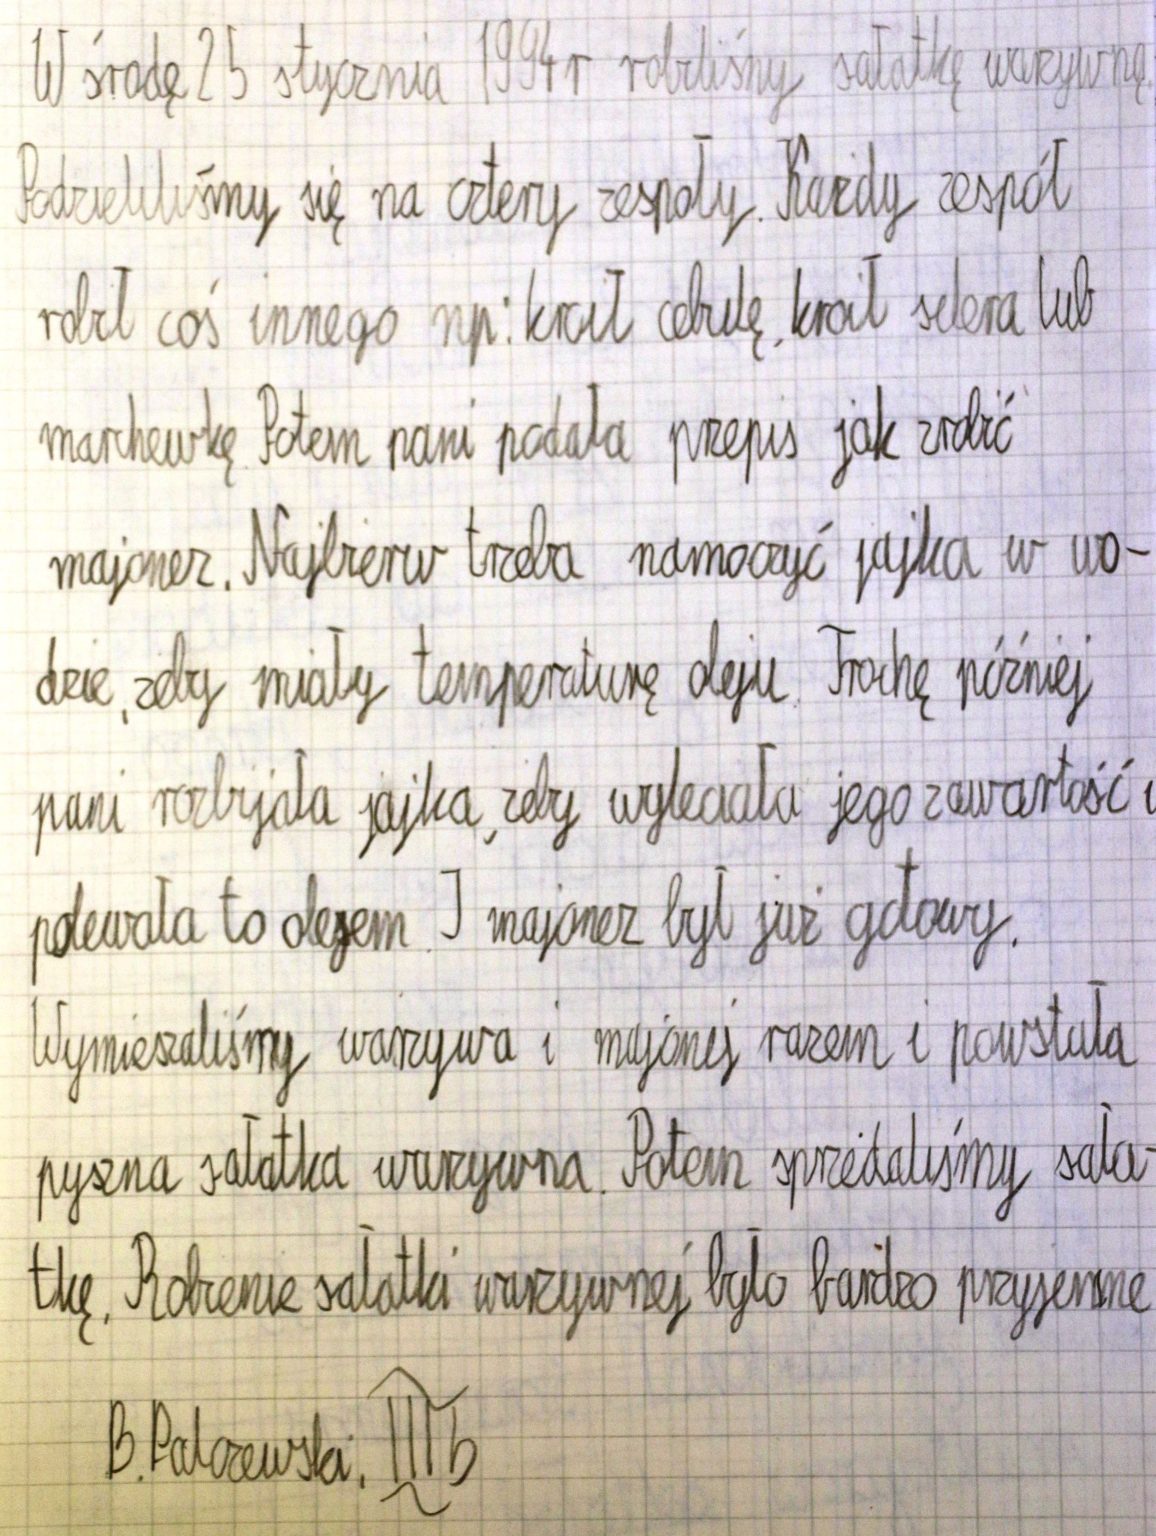 W środę 25 stycznia 1994r robiliśmy sałatkę warzywną.
Podzieliliśmy się na cztery zespoły. Każdy zespół
robił coś innego np: kroił cebulę, kroił selera lub
marchewkę. Potem pani podała przepis jak zrobić
majonez. Najbierw trzeba namoczyć jajka w wo-
dzie, żeby miały temperaturę oleju. Trochę później
pani rozbijała jajka, żeby wyleciała jego zawartość i
polewała to olejem. I majonez był już gotowy.
Wymieszaliśmy warzywa i majonez razem i powstała
pyszna sałatka warzywna. Potem sprzedaliśmy sała-
tkę. Robienie sałatki warzywnej było bardzo przyjemne
B. Palczewski, III b